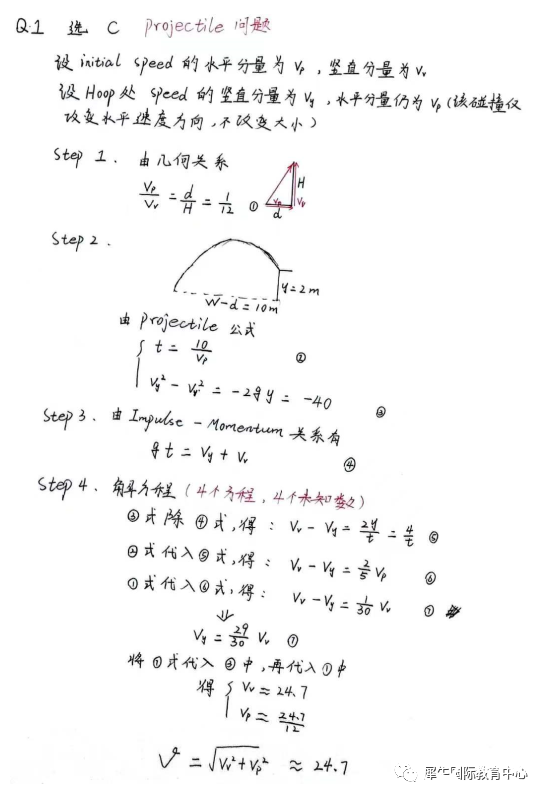 Q.1 选 C projectile 问题
设 initial speed 的水平分量为 Vp, 竖直分量为 Vv
设 Hoop 处 speed 的竖直分量为 Vy, 水平分量仍为 Vp (该碰撞仅
改变水平速度方向, 不改变大小)
Step 1. 由几何关系
Vp/Vv = d/H = 1/12 ①
H
Vp Vp
d
Step 2.
y = 2m
W-d = 10m
由 projectile 公式
{ t = 10/Vp ②
Vy² - Vv² = -2gy = -40 ③
Step 3. 由 Impulse - Momentum 关系有
gt = Vy + Vv ④
Step 4. 解方程 (4个方程, 4个未知数)
③式除④式, 得: Vv - Vy = 2y/t = 4/t ⑤
②式代入⑤式, 得: Vv - Vy = 2/5 Vp ⑥
①式代入⑥式, 得: Vv - Vy = 1/30 Vv ⑦
⇓
Vy = 29/30 Vv ⑦
将⑦式代入③中, 再代入①中
得 { Vv ≈ 24.7
Vp ≈ 24.7/12
V = √(Vv² + Vp²) ≈ 24.7
犀牛国际教育中心